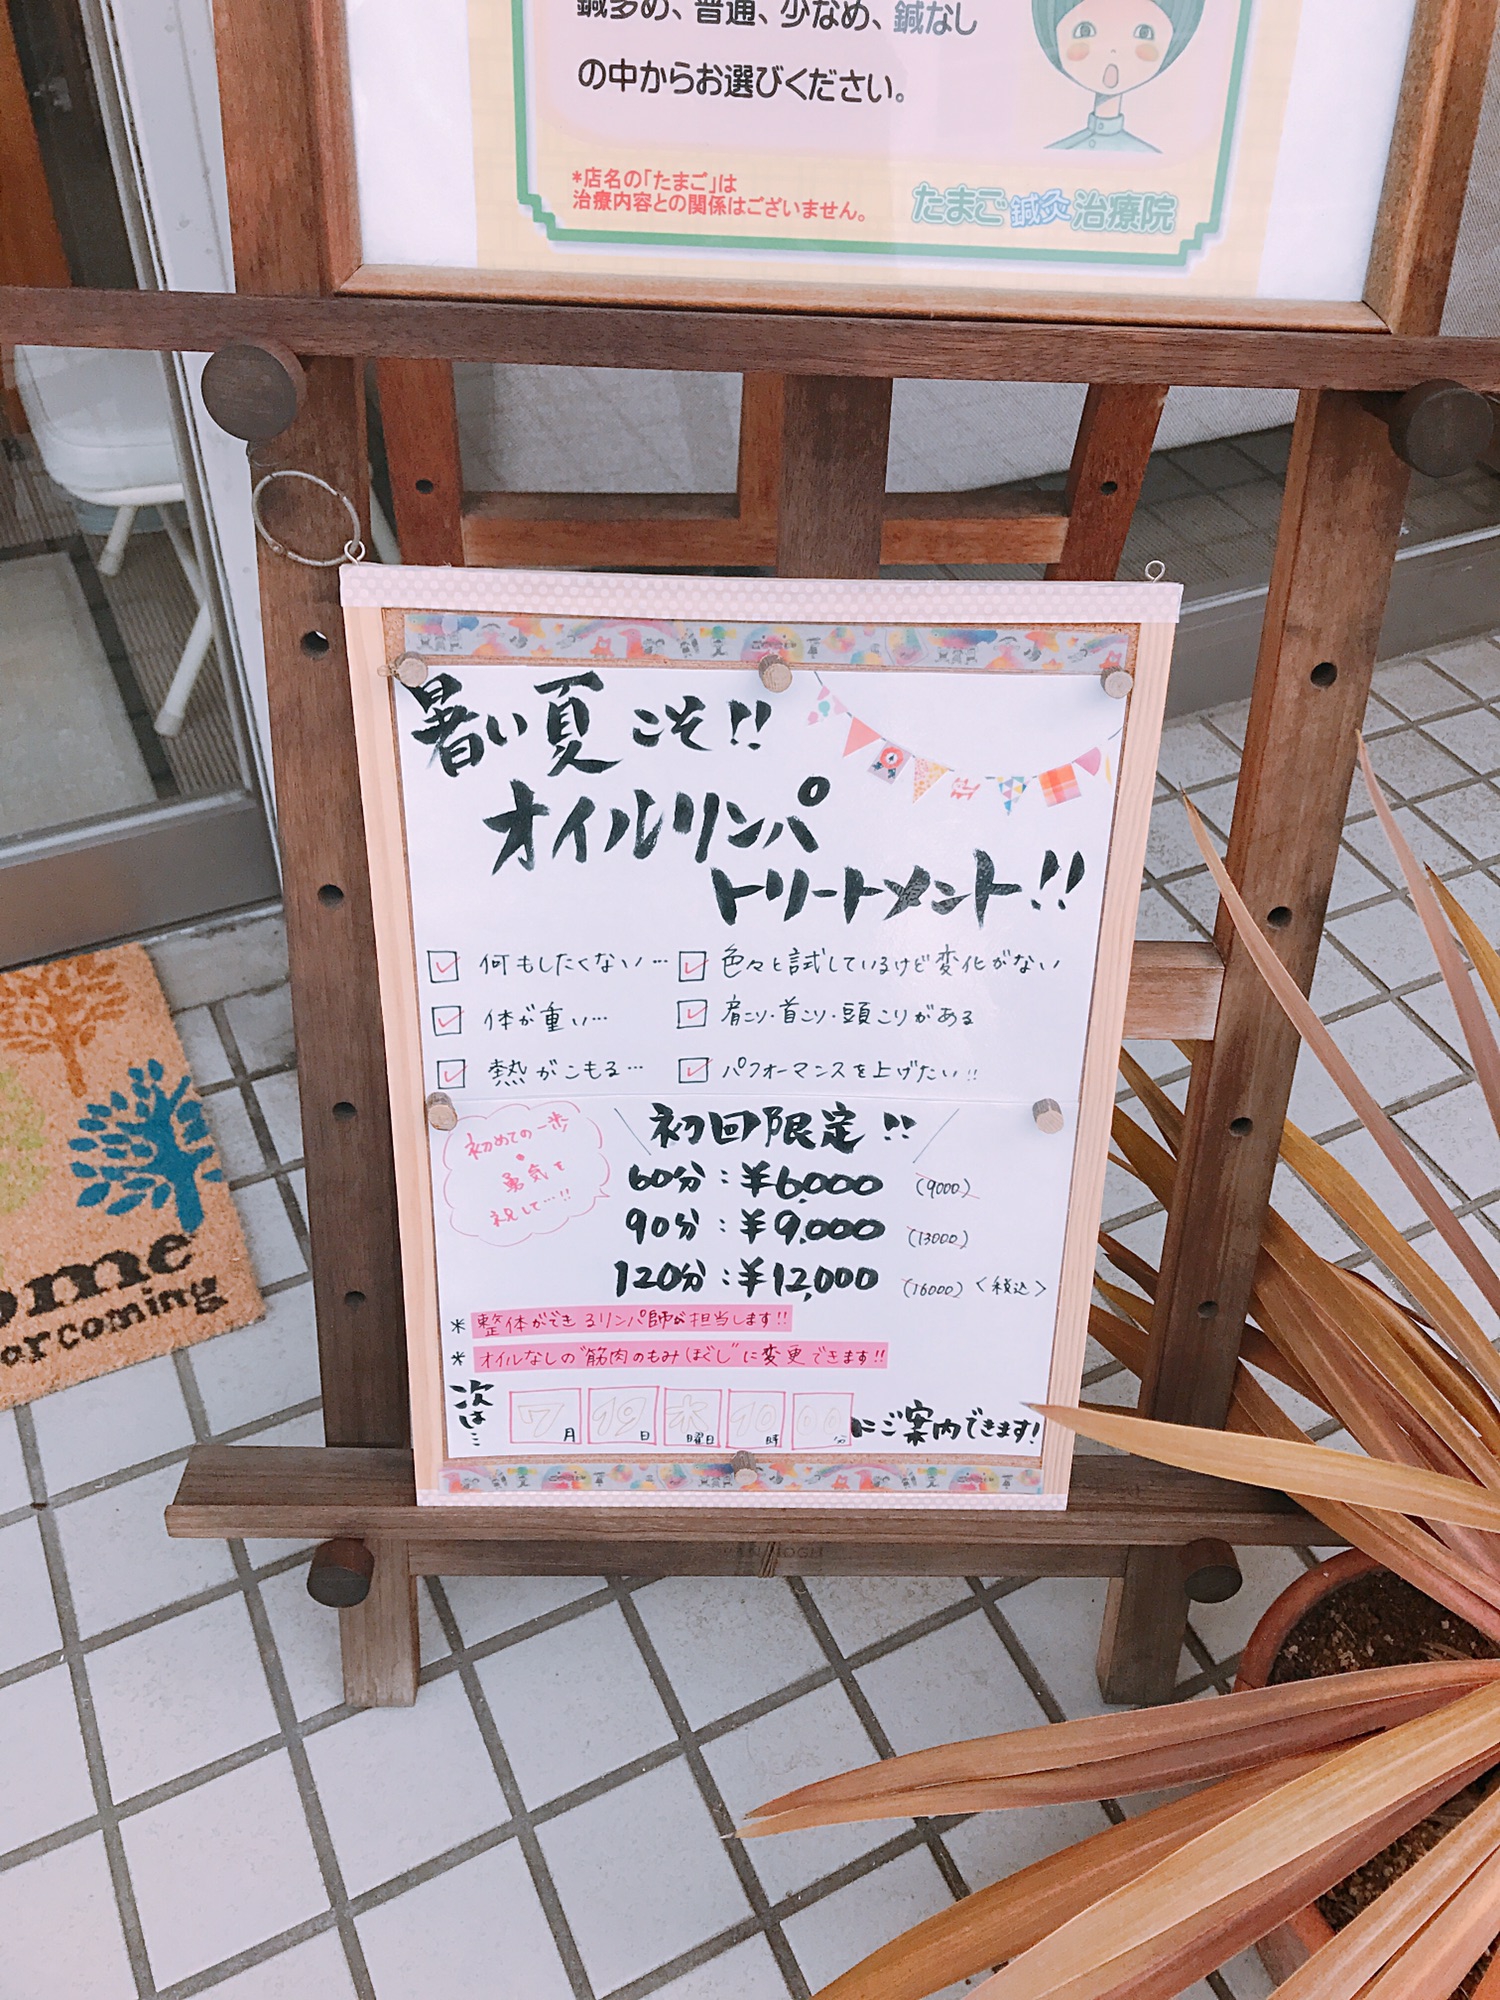 鍼多め、普通、少なめ、鍼なし
の中からお選びください。
*店名の「たまご」は
治療内容との関係はございません。
たまご鍼灸治療院
暑い夏こそ!!
オイルリンパ
トリートメント!!
何もしたくない…
色々と試しているけど変化がない
体が重い…
肩こり・首こり・頭こりがある
熱がこもる…
パフォーマンスを上げたい!!
初めての一歩
勇気を
祝して…!!
初回限定!!
60分:¥6,000 (9000)
90分:¥9,000 (13000)
120分:¥12,000 (16000) <税込>
* 整体ができるリンパ師が担当します!!
* オイルなしの"筋肉のもみほぐし"に変更できます!!
次は… 7月 19日 木曜日 10時 00分 にご案内できます!
ome
or coming